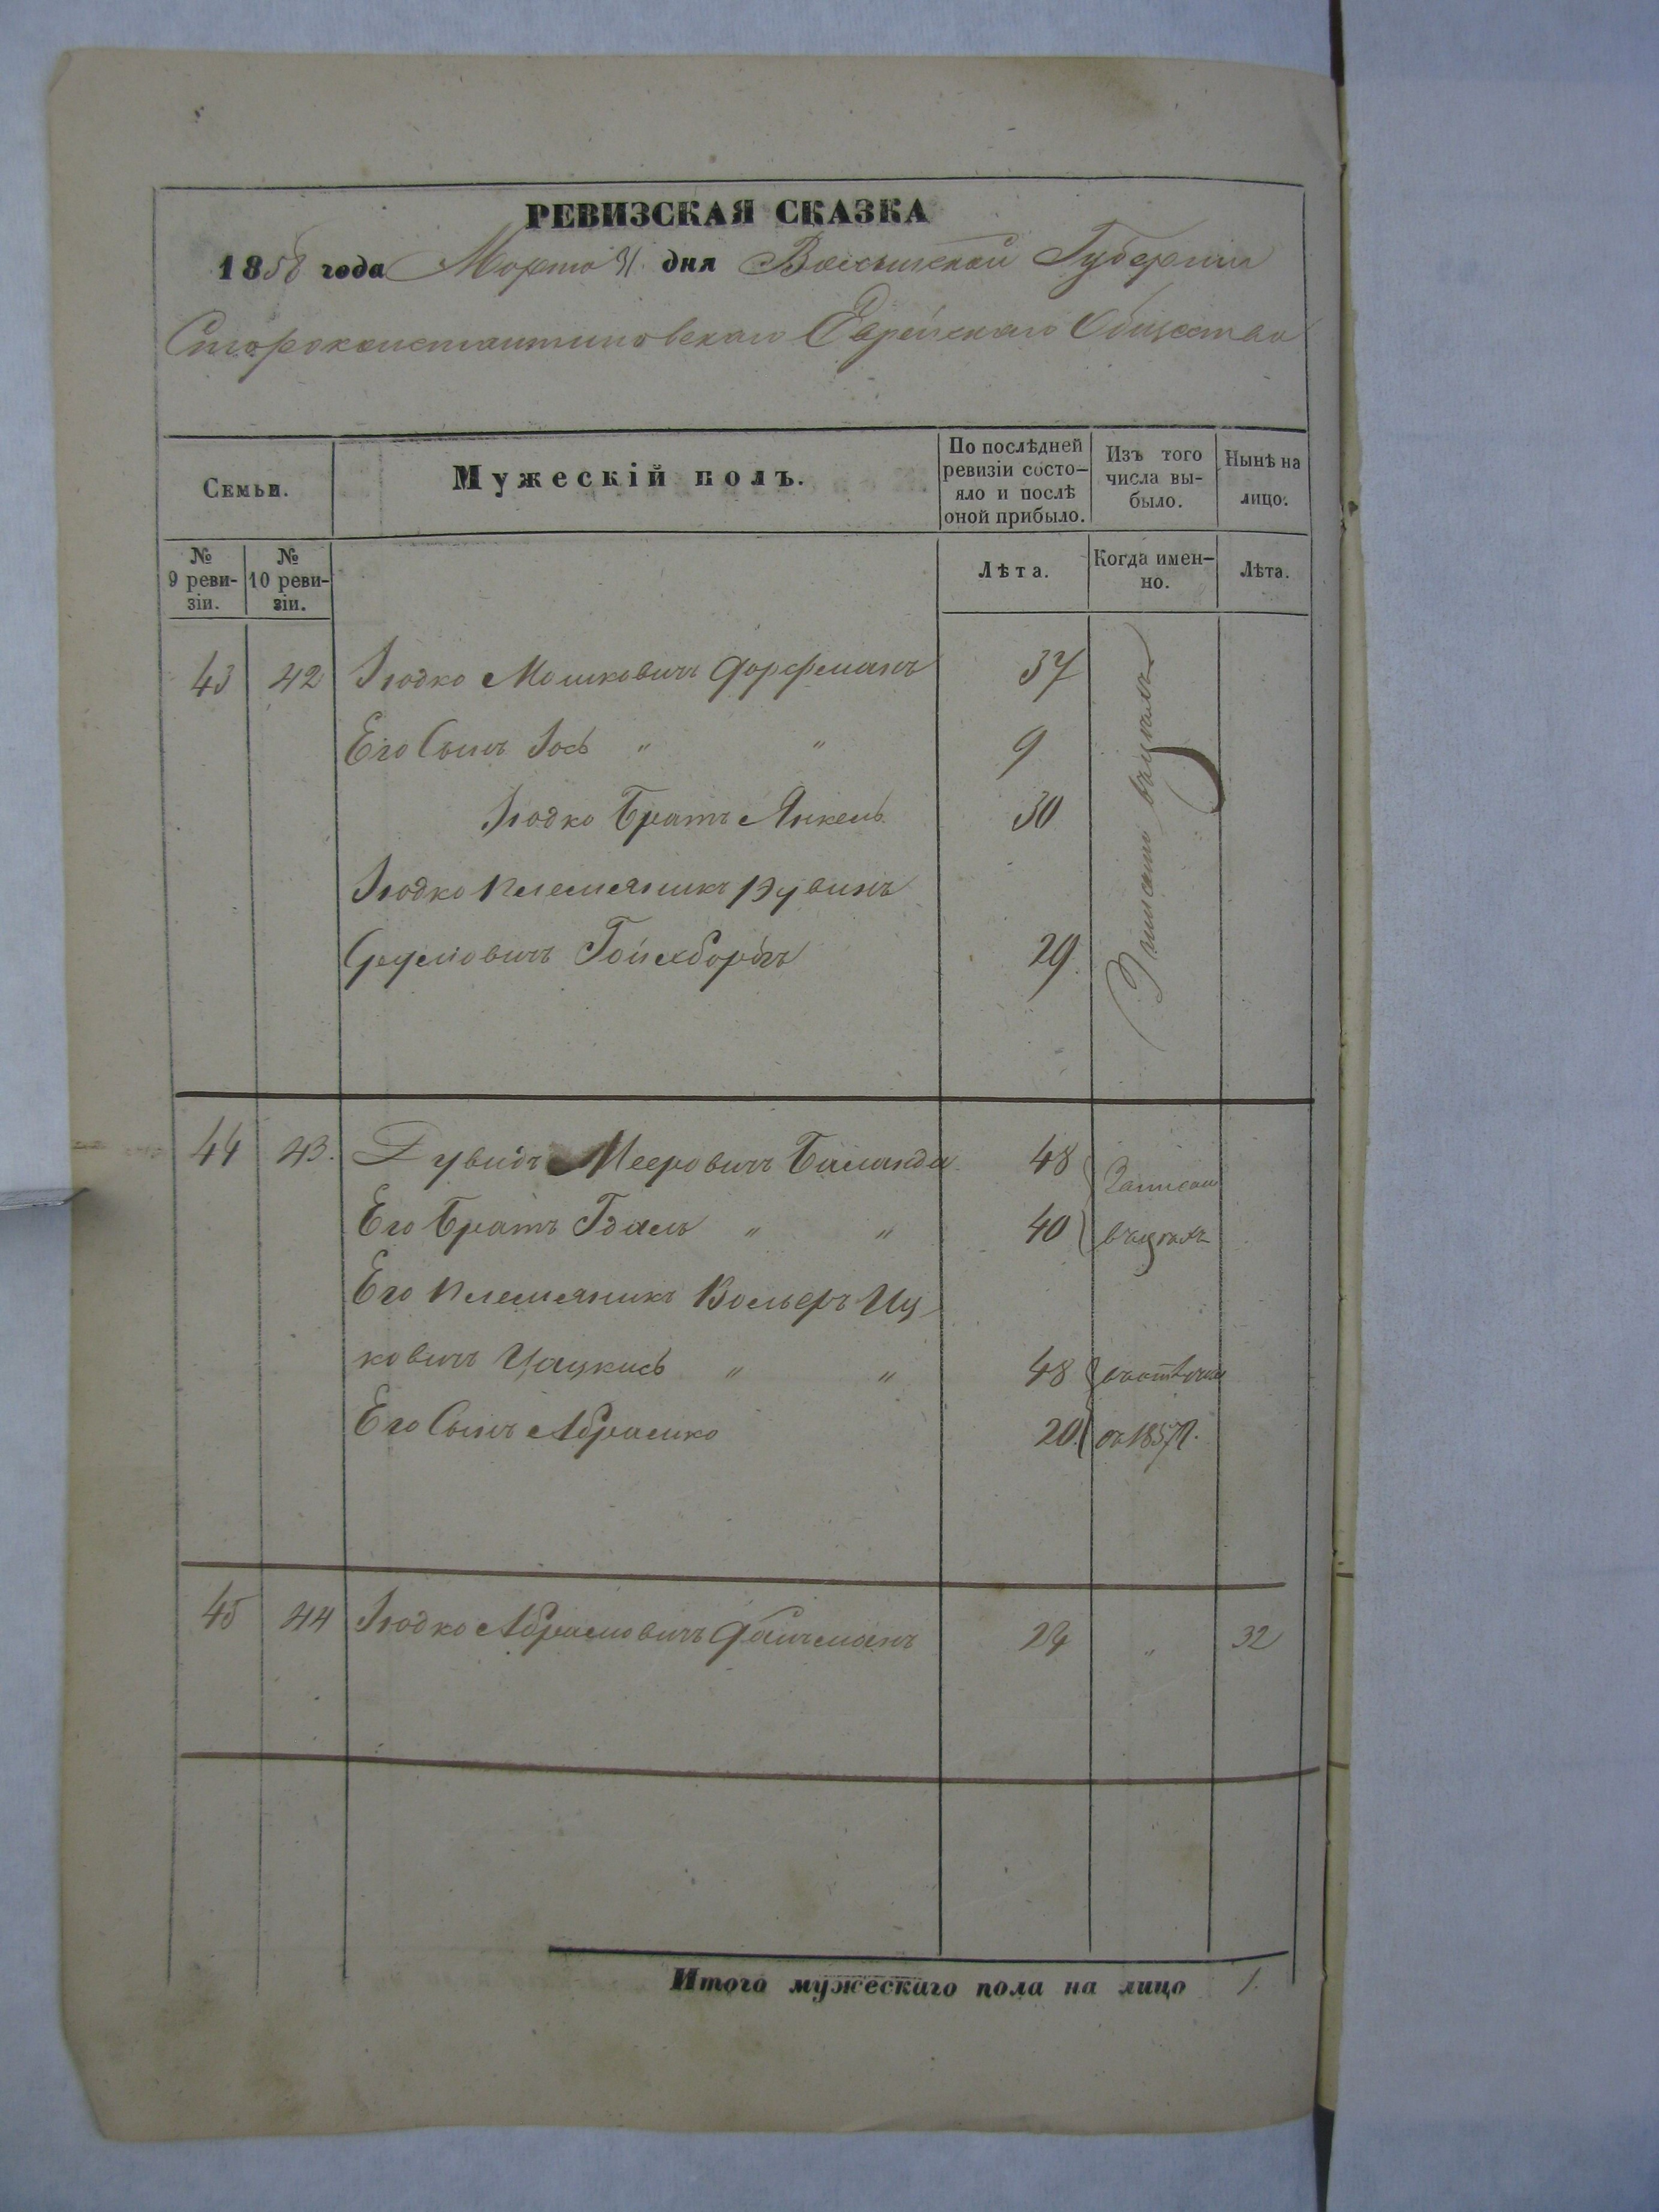 РЕВИЗСКАЯ СКАЗКА
1858 года Марта 31 дня Волынской Губернии
Староконстантиновскаго Еврейскаго Общества
Семьи.
Мужескій полъ.
По послѣдней ревизіи состо-яло и послѣ оной прибыло.
Изъ того числа вы-было.
Нынѣ на лицо.
№ 9 реви-зіи.
№ 10 реви-зіи.
Лѣта.
Когда имен-но.
Лѣта.
43 42 Іюдко Мошковичъ Дорфманъ 37
Его Сынъ Іось " " 9
Іюдко Братъ Янкель 30
Іюдко Племяникъ Рувинъ
Сруловичъ Гойхбаргъ 29.
44 43. Дувидъ Мееровичъ Баланда 48 Записан
Его Братъ Гдаль " " 40
Его Племяникъ Вольеръ Иц
ковичъ Цацкись " " 48
Его Сынъ Абрамко 20. 1857 г.
45 44 Іюдко Абрамовичъ 24 " 32
Итого мужескаго пола на лицо 1.